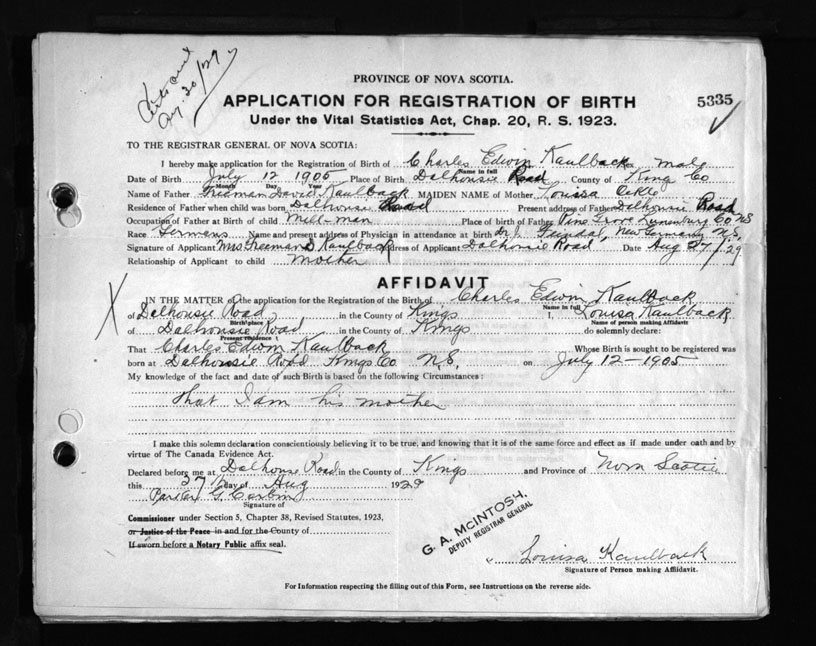 Aug 30/29
PROVINCE OF NOVA SCOTIA.
APPLICATION FOR REGISTRATION OF BIRTH
5335
Under the Vital Statistics Act, Chap. 20, R. S. 1923.
TO THE REGISTRAR GENERAL OF NOVA SCOTIA:
I hereby make application for the Registration of Birth of Charles Edwin Kaulback Sex male
Name in full
Date of Birth July 12 1905 Place of Birth Dalhousie Road County of King Co
Month Day Year
Name of Father Freeman David Kaulback MAIDEN NAME of Mother Louisa
Residence of Father when child was born Dalhousie Road Present address of Father Dalhousie Road
Occupation of Father at Birth of child Mill-man Place of birth of Father Pine Grove Lunenburg Co NS
Race Germans Name and present address of Physician in attendance at birth Dr New Germany N.S.
Signature of Applicant Mrs Freeman D Kaulback Address of Applicant Dalhousie Road Date Aug 27/29
Relationship of Applicant to child mother
AFFIDAVIT
IN THE MATTER of the application for the Registration of the Birth of Charles Edwin Kaulback
Name in full
of Dalhousie Road, in the County of Kings I, Louisa Kaulback
Birthplace Name of person making Affidavit
of Dalhousie Road in the County of Kings do solemnly declare:
Present residence
That Charles Edwin Kaulback Whose Birth is sought to be registered was
born at Dalhousie Road Kings Co N.S. on July 12-1905
My knowledge of the fact and date of such Birth is based on the following Circumstances:
that I am his mother
I make this solemn declaration conscientiously believing it to be true, and knowing that it is of the same force and effect as if made under oath and by
virtue of The Canada Evidence Act.
Declared before me at Dalhousie Road in the County of Kings and Province of Nova Scotia
this 27th day of Aug 1929
Signature of
Commissioner under Section 5, Chapter 38, Revised Statutes, 1923,
or Justice of the Peace in and for the County of
If sworn before a Notary Public affix seal.
G. A. McINTOSH,
DEPUTY REGISTRAR GENERAL
Louisa Kaulback
Signature of Person making Affidavit.
For Information respecting the filling out of this Form, see Instructions on the reverse side.